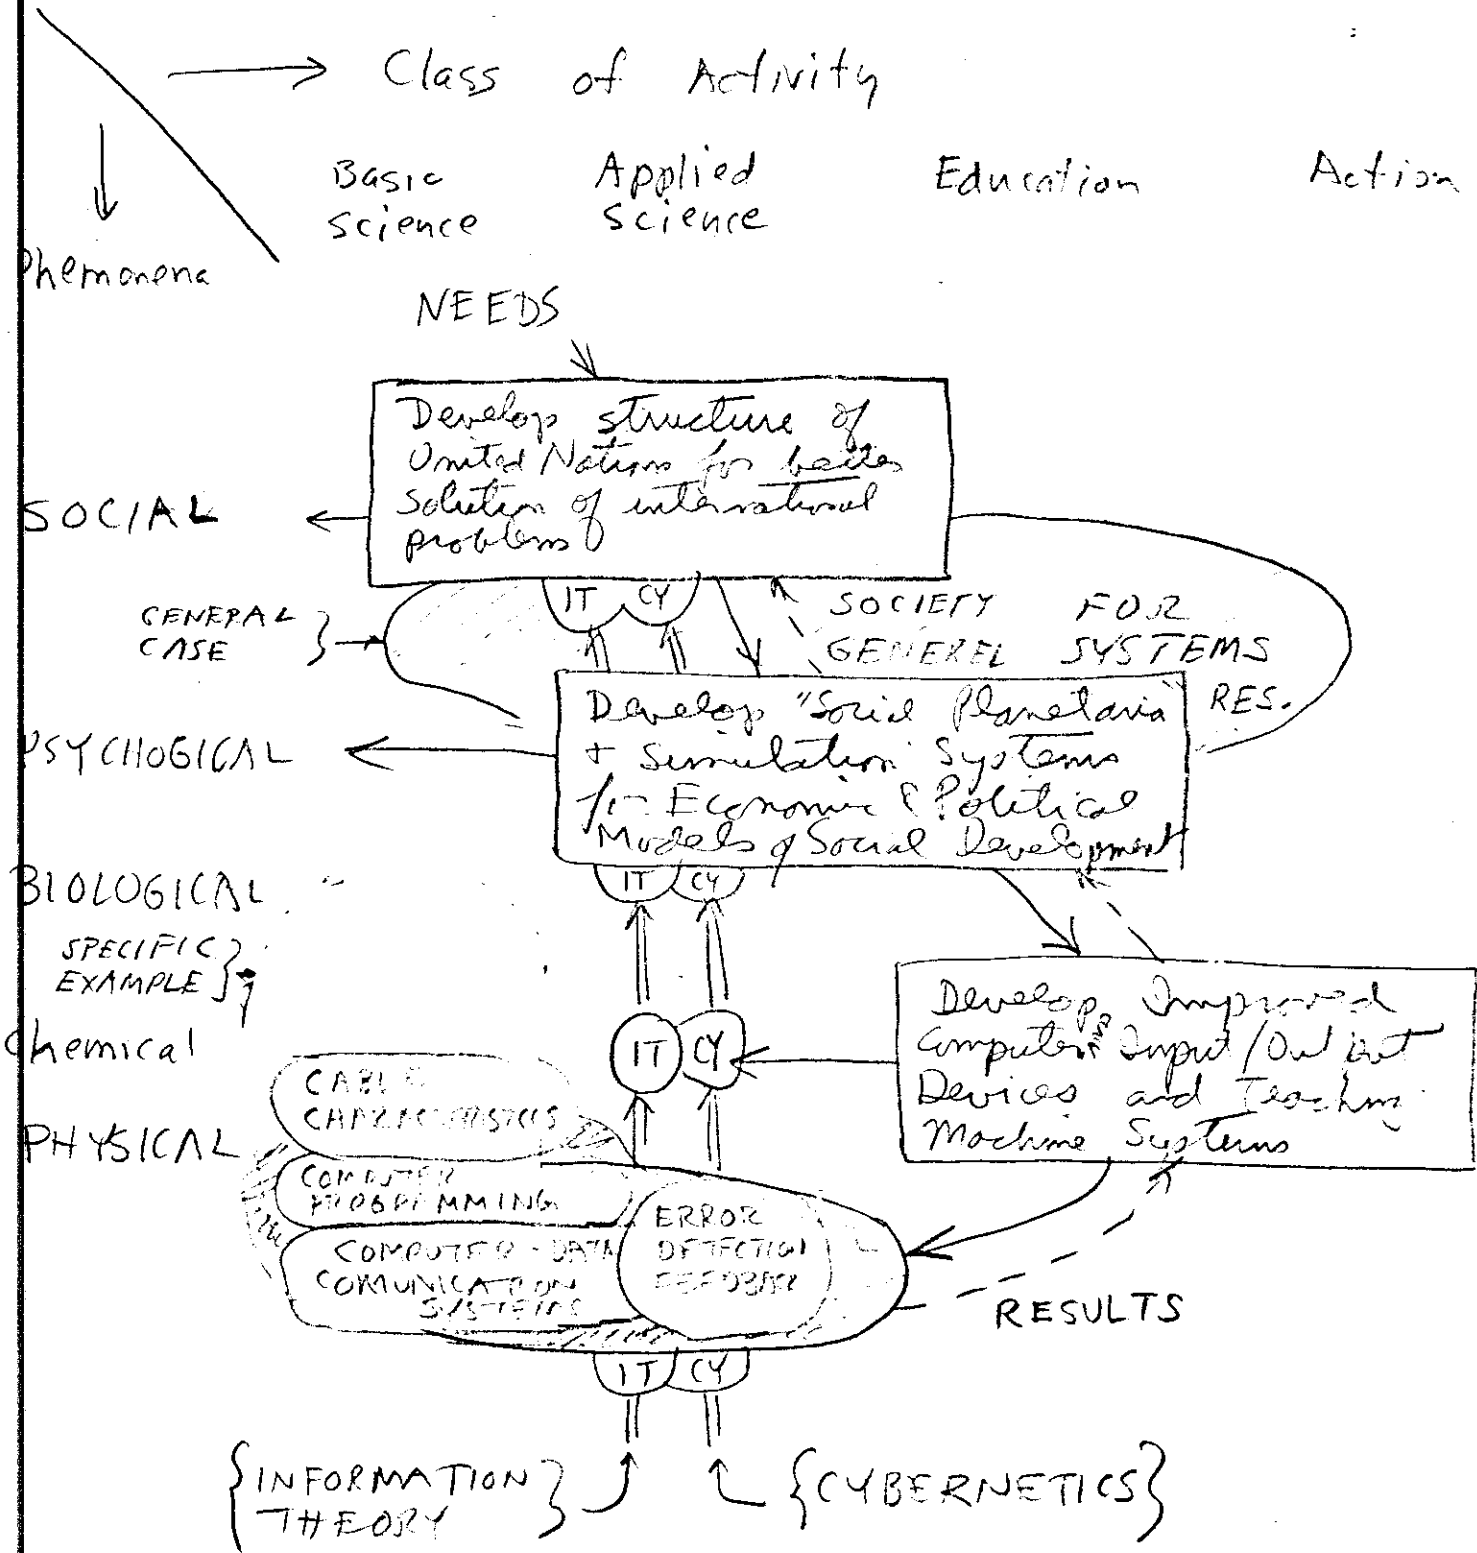 Class of Activity
Basic Applied Education Action
science science
Phemonena
NEEDS
Develop structure of
United Nations for better
solution of international
problems
SOCIAL
IT CY
GENERAL
CASE
SOCIETY FOR
GENEREL SYSTEMS
RES.
Develop "Social Planetaria"
+ Simulation Systems
for Economic & Political
Models of Social Development
PSYCHOGICAL
IT CY
BIOLOGICAL
SPECIFIC
EXAMPLE
Develop Improved
Computer Input/Output
Devices and Teaching
Machine Systems
Chemical
IT CY
CABLE
CHARACTERISTICS
PHYSICAL
COMPUTER
PROGRAMMING
COMPUTER - DATA
COMUNICATION
SYSTEMS
ERROR
DETECTION
FEEDBACK
RESULTS
IT CY
{INFORMATION
THEORY}
{CYBERNETICS}